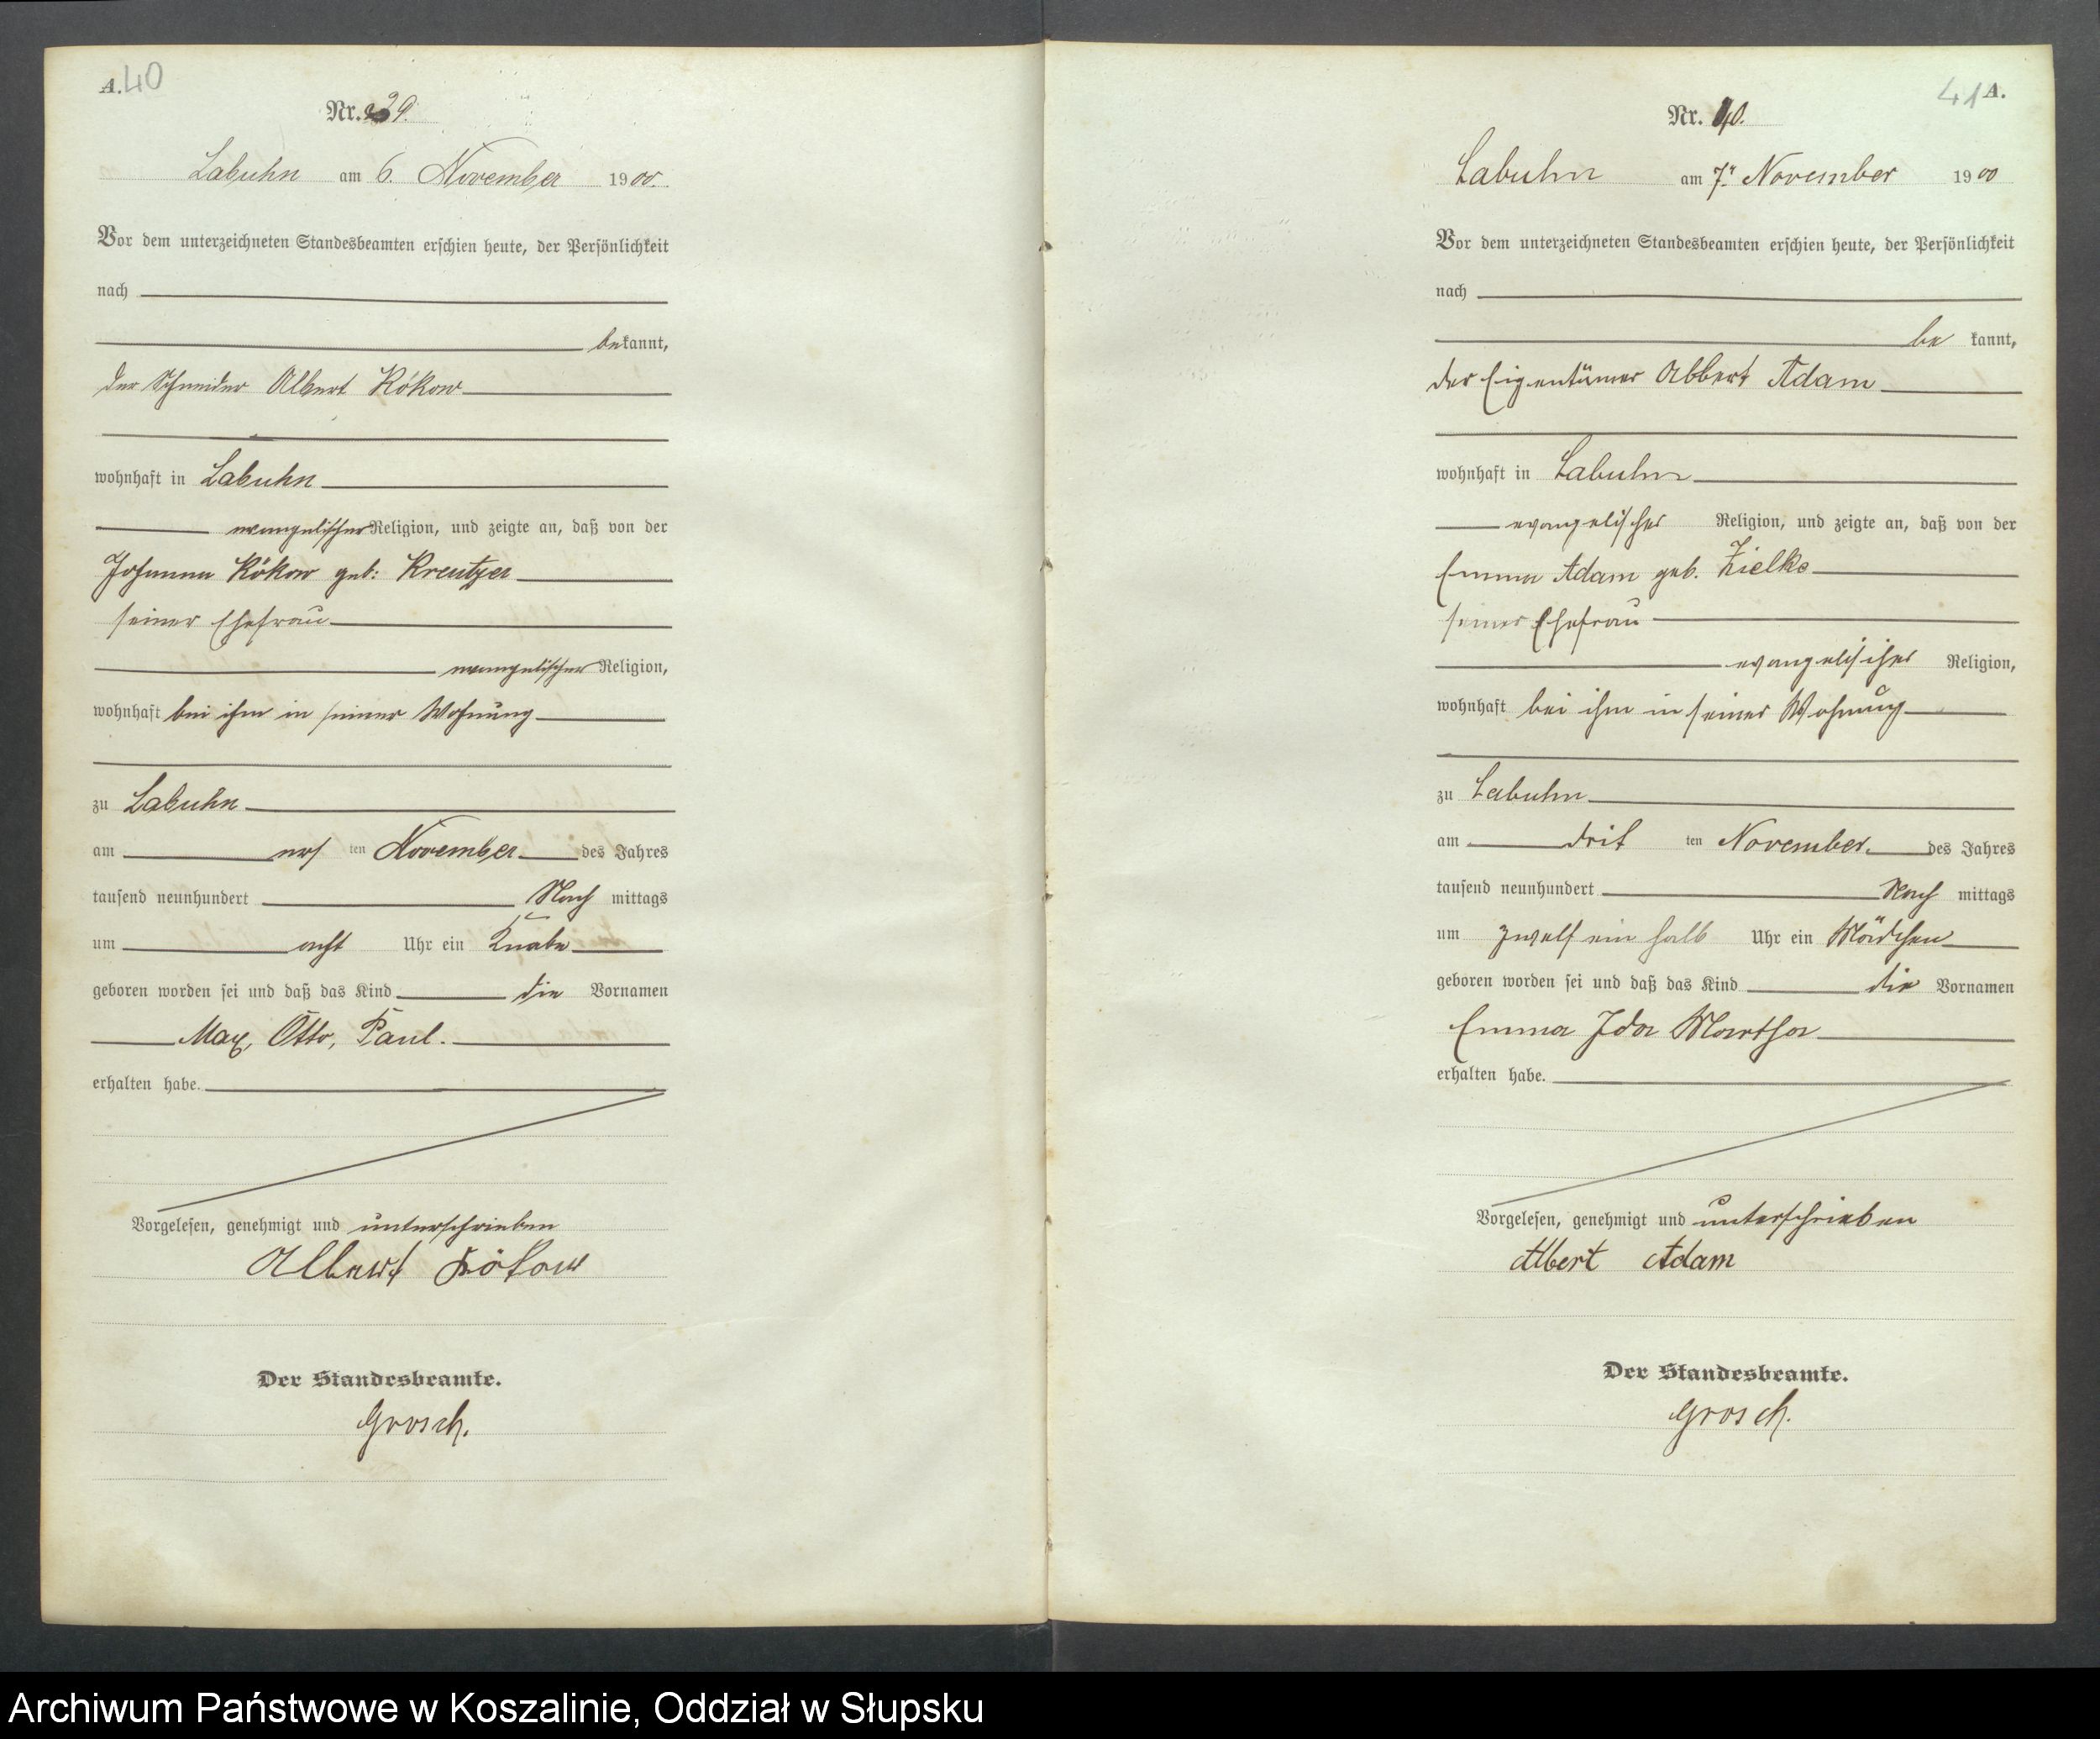 A. 40
Nr. 39.
Labuhn am 6. November 1900.
Vor dem unterzeichneten Standesbeamten erschien heute, der Persönlichkeit
nach
bekannt,
der Schneider Albert Kökow
wohnhaft in Labuhn
evangelischer Religion, und zeigte an, daß von der
Johanna Kökow geb: Kreutzer
seiner Ehefrau
evangelischer Religion,
wohnhaft bei ihm in seiner Wohnung
zu Labuhn
am ersten November des Jahres
tausend neunhundert Nachmittags
um acht Uhr ein Knabe
geboren worden sei und daß das Kind die Vornamen
Max, Otto, Paul.
erhalten habe.
Vorgelesen, genehmigt und unterschrieben
Albert Kökow
Der Standesbeamte.
Grosch.
41 A.
Nr. 40.
Labuhn am 7. November 1900
Vor dem unterzeichneten Standesbeamten erschien heute, der Persönlichkeit
nach
bekannt,
der Eigentümer Albert Adam
wohnhaft in Labuhn
evangelischer Religion, und zeigte an, daß von der
Emma Adam geb. Zielke
seiner Ehefrau
evangelischer Religion,
wohnhaft bei ihm in seiner Wohnung
zu Labuhn
am dritten November des Jahres
tausend neunhundert Nachmittags
um zwölf ein halb Uhr ein Mädchen
geboren worden sei und daß das Kind die Vornamen
Emma Ida Martha
erhalten habe.
Vorgelesen, genehmigt und unterschrieben
Albert Adam
Der Standesbeamte.
Grosch.
Archiwum Państwowe w Koszalinie, Oddział w Słupsku